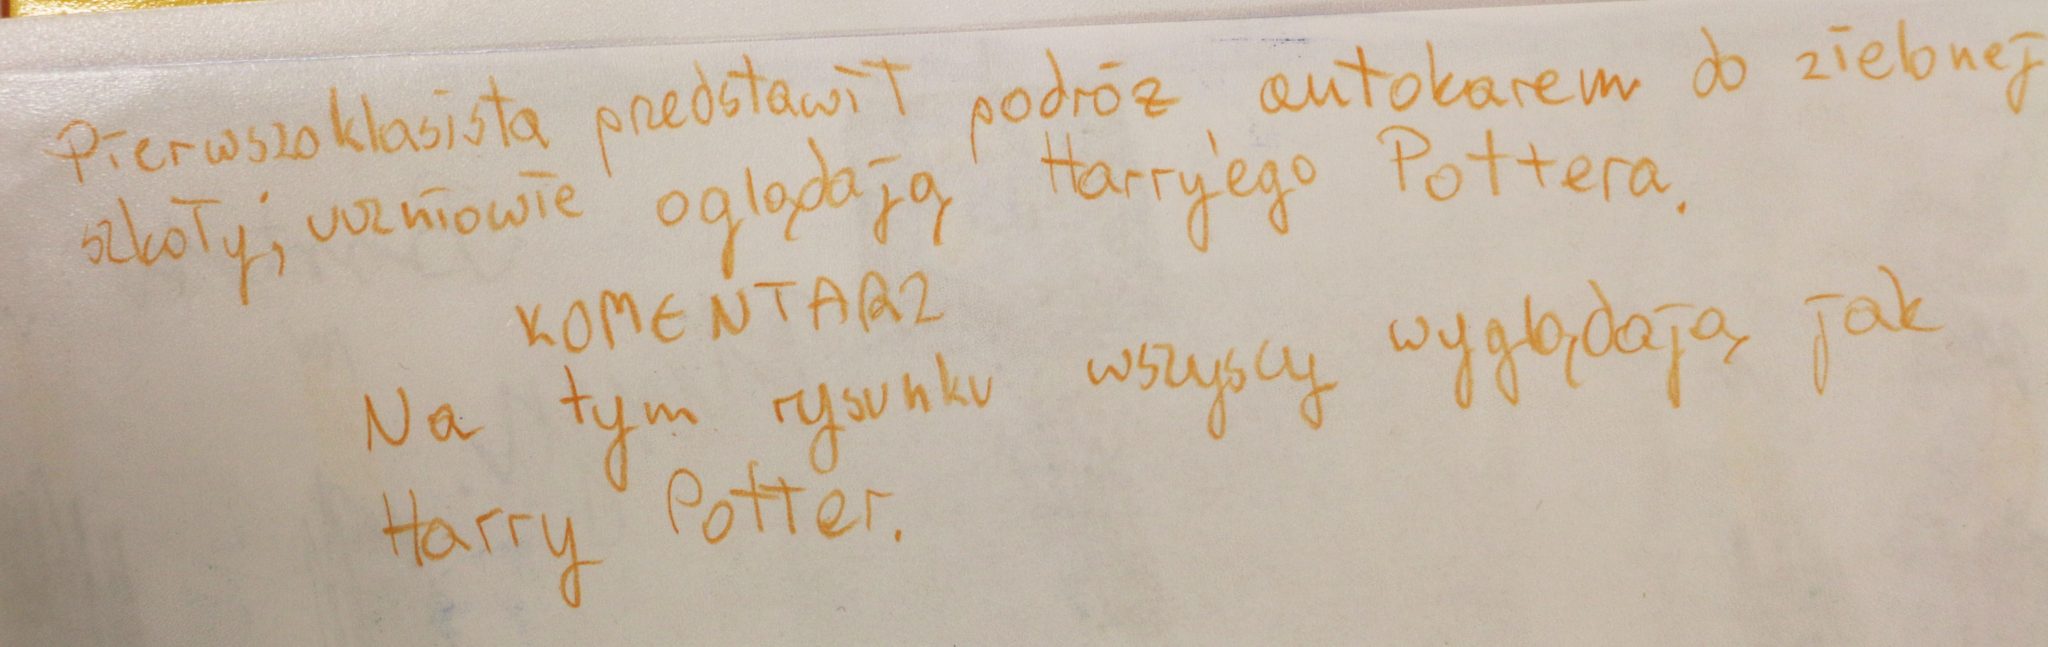 Pierwszoklasista przedstawił podróż autokarem do zielonej
szkoły, uczniowie oglądają Harry'ego Pottera.
KOMENTARZ
Na tym rysunku wszyscy wyglądają jak
Harry Potter.